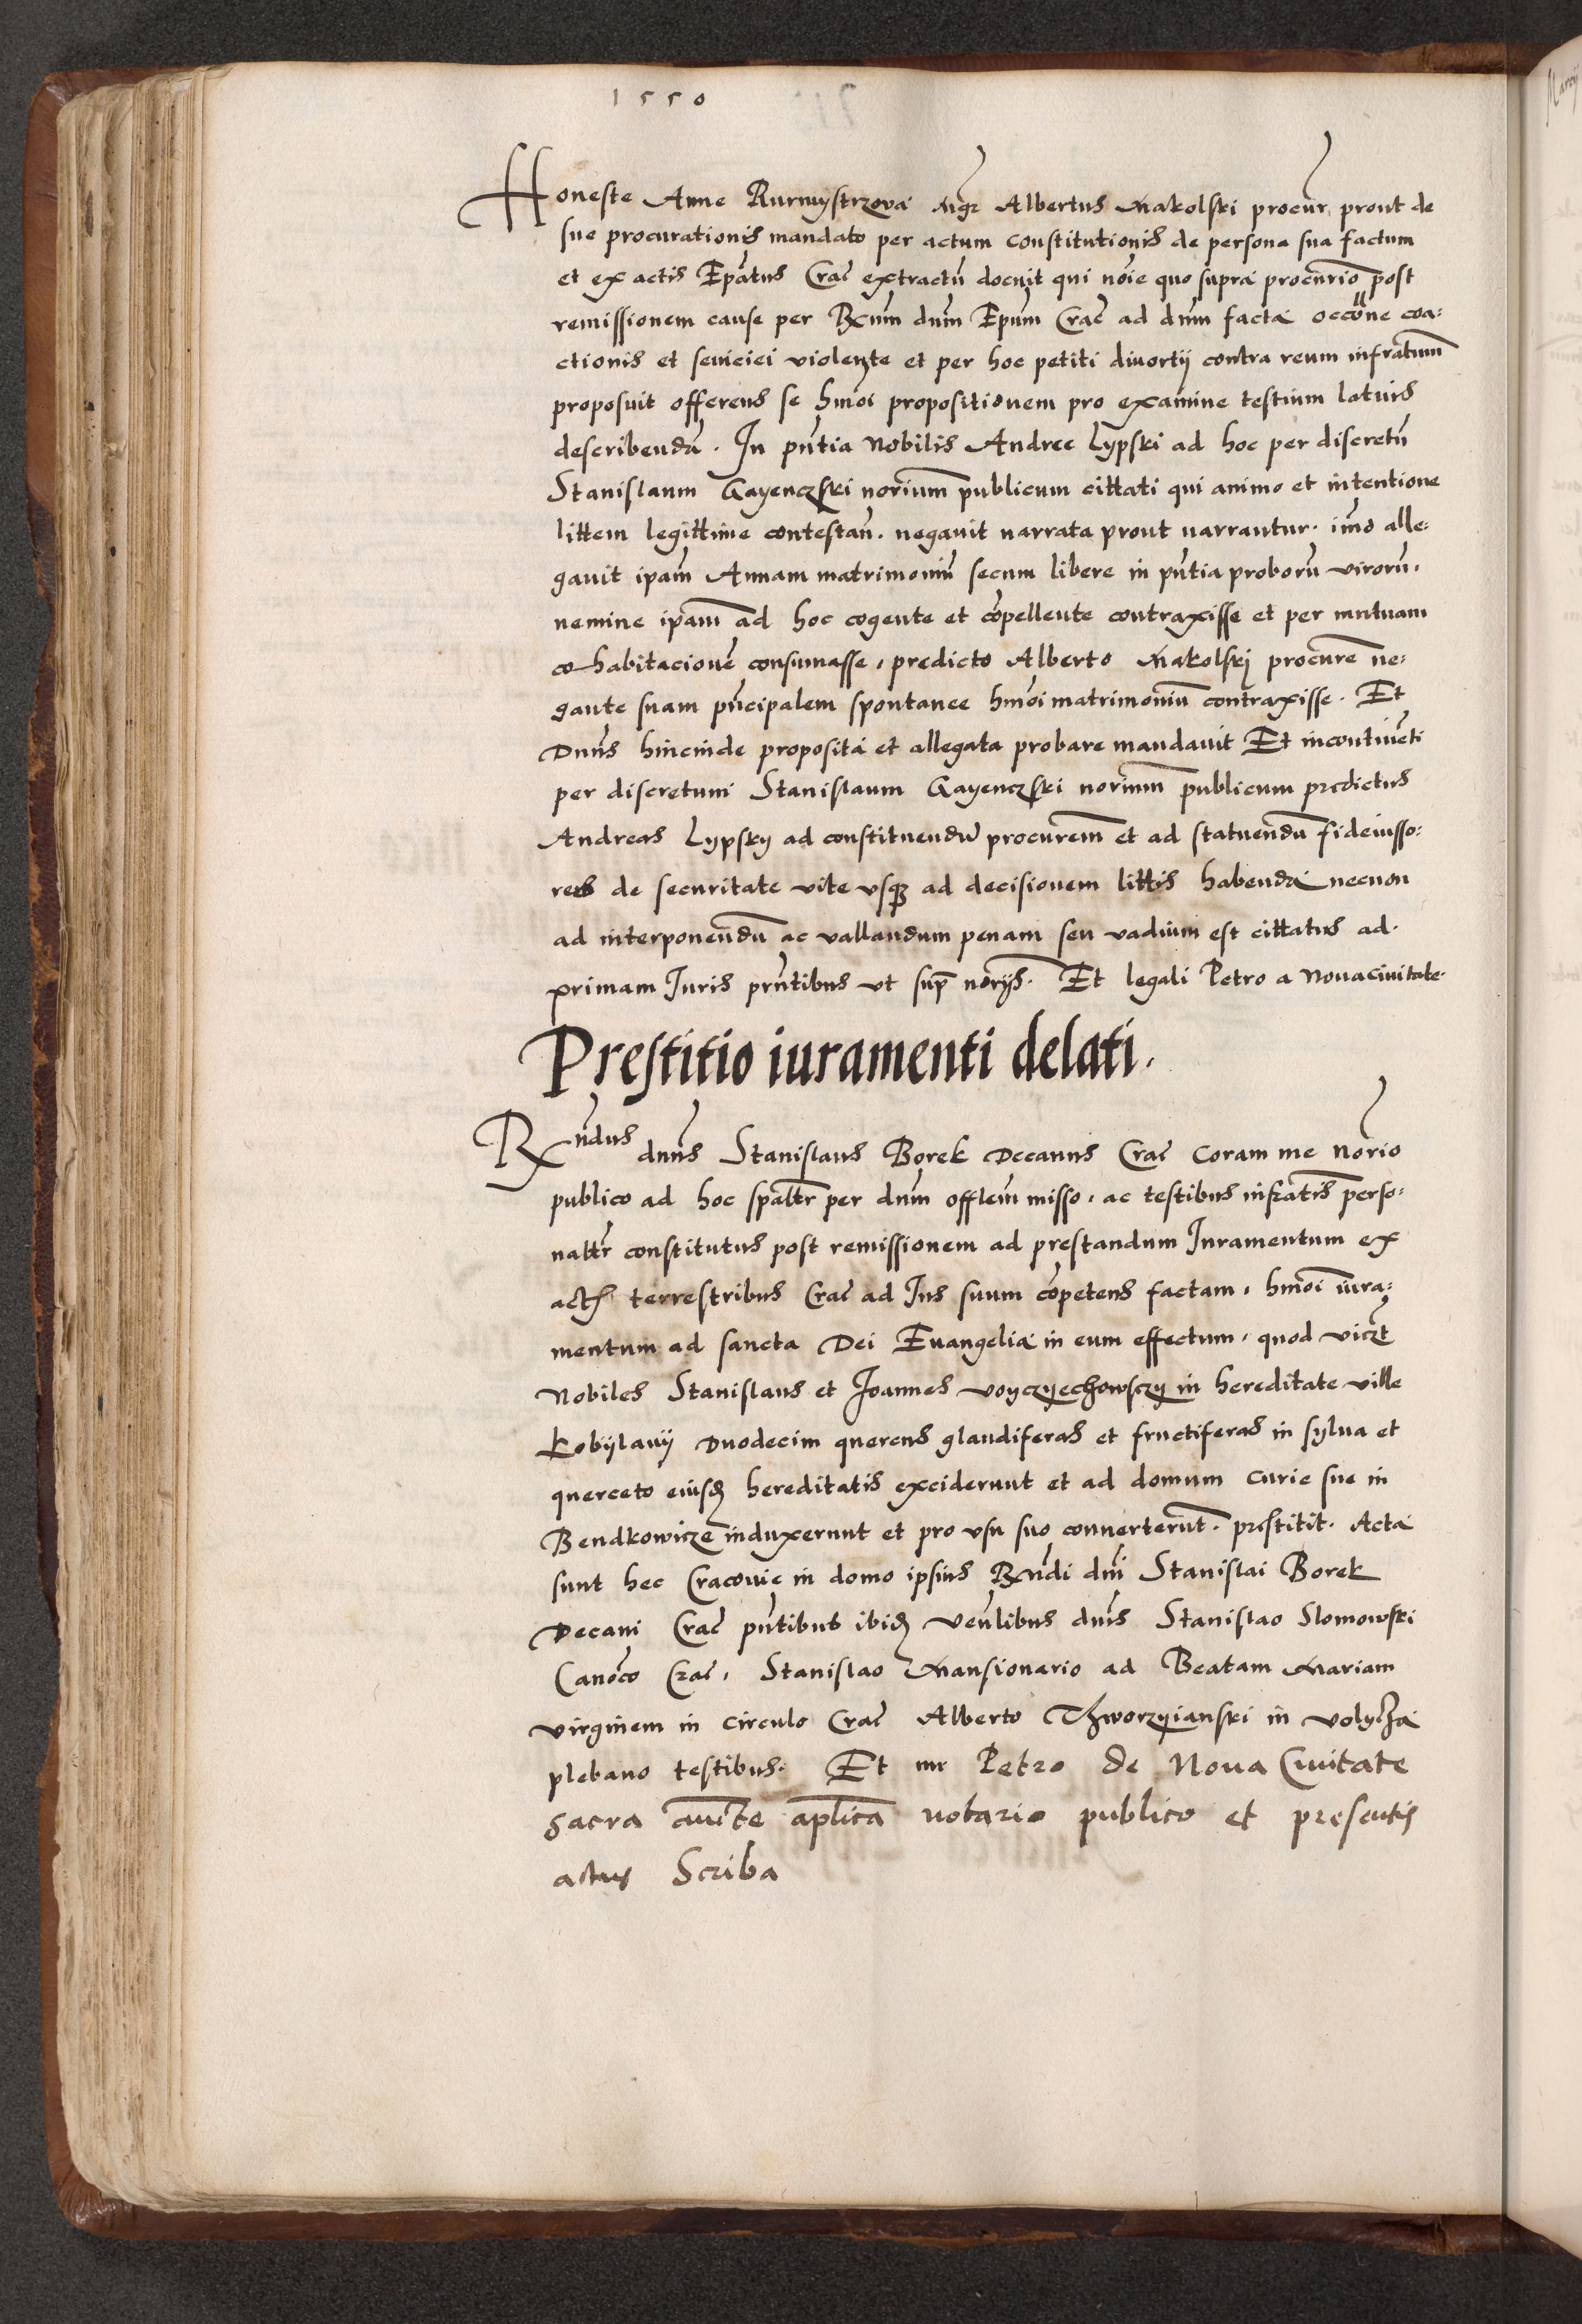 1550
Honeste Anne Rurmystrzova mgr Albertus Makolski procur prout de
sue procurationis mandato per actum constitutionis de persona sua factum
et ex actis Epatus Crac extractu docuit qui noie quo supra procurio post
remissionem cause per Rxum dnm Epum Crac ad dnm facta occone coa:
ctionis et seuiciei violente et per hoc petiti diuortij contra reum infratum
proposuit offerens se hmoi propositionem pro examine testium latius
describendu. In pntia Nobilis Andree Lypski ad hoc per discretu
Stanislaum Gayenczski norium publicum cittati qui animo et intentione
littem legittime contestan. negauit narrata prout narrantur. imo alle:
gauit ipam Annam matrimoniu secum libere in pntia proboru viroru.
nemine ipam ad hoc cogente et copellente contraxisse et per mutuam
cohabitacione consumasse, predicto Alberto Makolskj procure ne:
gante suam pncipalem spontanee hmoi matrimoniu contraxisse. Et
Dnns hincinde proposita et allegata probare mandauit Et incontineti
per discretum Stanislaum Gayenczski norium publicum predictus
Andreas Lypsky ad constituendu procurem et ad statuendu fideiusso:
res de securitate vite vsq ad decisionem littis habenda necnon
ad interponendu ac vallandum penam seu vadium est cittatus ad.
primam Juris prntibus vt sup norijs. Et legali Petro a Nouaciuitate.
Prestitio iuramenti delati.
Rxndus dnns Stanislaus Borek Decanus Crac coram me norio
publico ad hoc spaltr per dnm offlem misso, ac testibus infratis perso:
naltr constitutus post remissionem ad prestandum Juramentum ex
actis terrestribus Crac ad Jus suum copetens factam, hmoi iura:
mentum ad sancta Dei Euangelia in eum effectum, quod viczt
Nobiles Stanislaus et Joannes voyczyechowsczy in hereditate ville
Kobijlanij Duodecim quercus glandiferas et fructiferas in sylua et
querceto eiusd hereditatis exciderunt et ad domum curie sue in
Bendkowicze induxerunt et pro vsu suo conuerterunt. prestitit. Acta
sunt hec Cracouie in domo ipsius Rxndi dni Stanislai Borek
Decani Crac pntibus ibid venlibus dnis Stanislao Slomowski
Canoco Crac, Stanislao Mansionario ad Beatam Mariam
virginem in circulo Crac Alberto Thworzyianski in volycza
plebano testibus. Et me Petro de Noua Ciuitate
sacra aucte aplica notario publico et presentis
actus Scriba